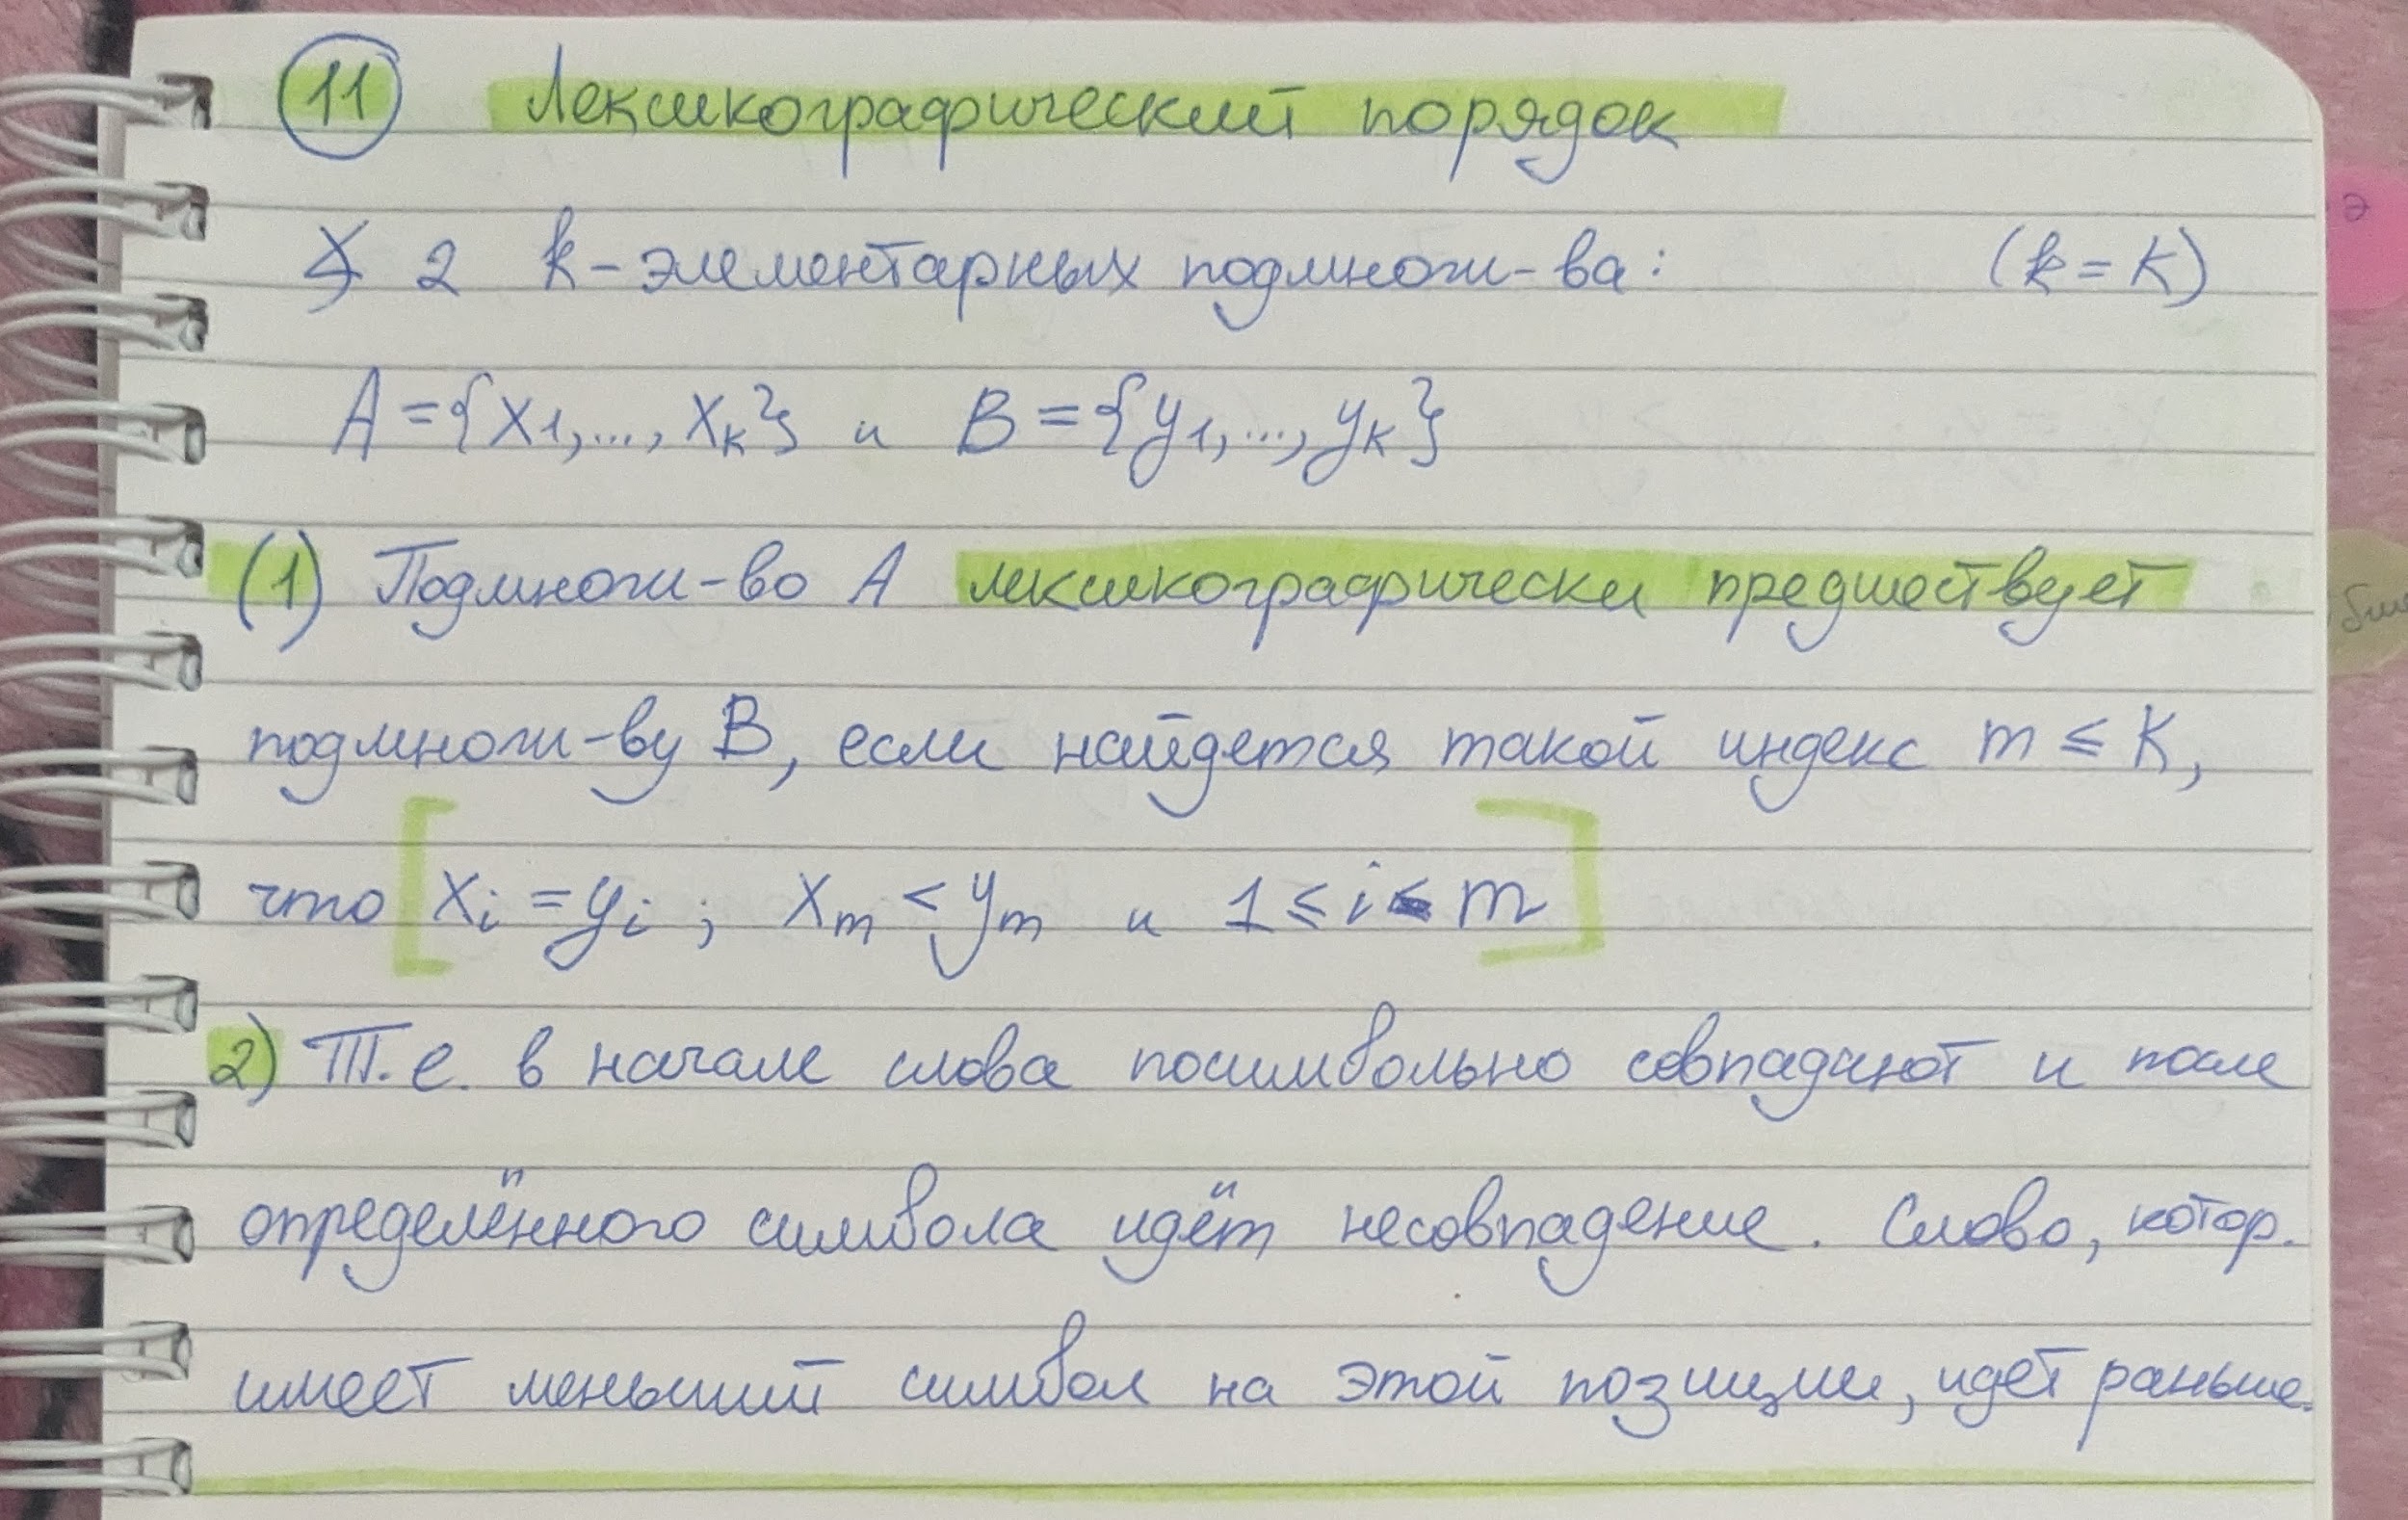 11 Лексикографический порядок
∢ 2 k-элементарных подмнож-ва: (k = K)
A = {x₁,..., xₖ} и B = {y₁,..., yₖ}
(1) Подмнож-во A лексикографически предшествует
подмнож-ву B, если найдется такой индекс m ≤ K,
что [xᵢ = yᵢ ; xₘ < yₘ и 1 ≤ i < m]
2) Т.е. в начале слова посимвольно совпадают и после
определённого символа идёт несовпадение. Слово, котор.
имеет меньший символ на этой позиции, идет раньше.